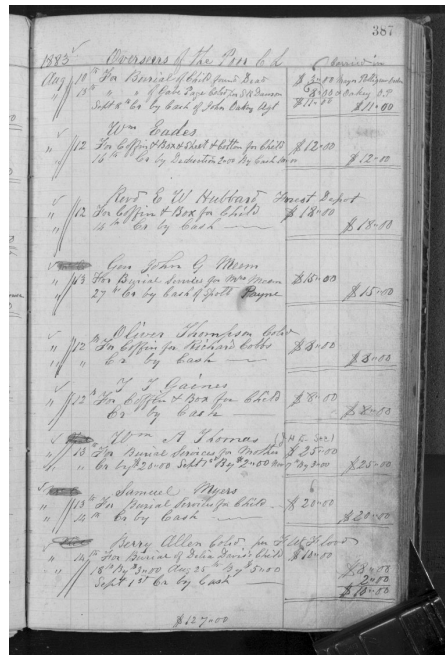 387
1883 Overseers of the Poor C.L.
Aug 10th For Burial of Child found Dead $3"00
" 13th " " of Cate Page Cold $8"00 Oakey
Sept 8th Cr by Cash of John Oakey Agt $11"00 $11"00
Wm Eades
" 12 For Coffin & Box & Shect & Cotton for Child $12"00
" 15th Cr by Deduction 2"00 By Cash $12"00
Revd E W Hubbard Forest Depot
" 12 For Coffin & Box for Child $18"00
" 14th Cr by Cash $18"00
Gen John G Meem
" 13 For Burial Services for Mrs Meem $15"00
" 27th Cr by Cash of Spott Payne $15"00
Oliver Thompson Cold
" 12th For Coffin for Richard Cobbs $8"00
" " Cr by Cash $8"00
T T Gaines
" 12th For Coffin & Box for Child $8"00
Cr by Cash $8"00
Wm A Thomas
" 13th For Burial Services for Mother $25"00
" " Cr by $20"00 Sept 1st By $2"00 7th By 3"00 $25"00
Samuel Myers
" 13th For Burial Services for Child $20"00
" 14th Cr by Cash $20"00
Berry Allen Cold per Flood
" 14th For Burial of Delia Child $10"00
18th By $3"00 Aug 25th By $5"00 $8"00
Sept 1st Cr by Cash 2"00
$10"00
$127"00